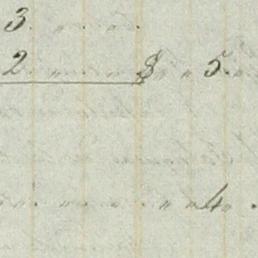 3 " " "
2 " " " $ " " 5 "
" " " " " " 4 "